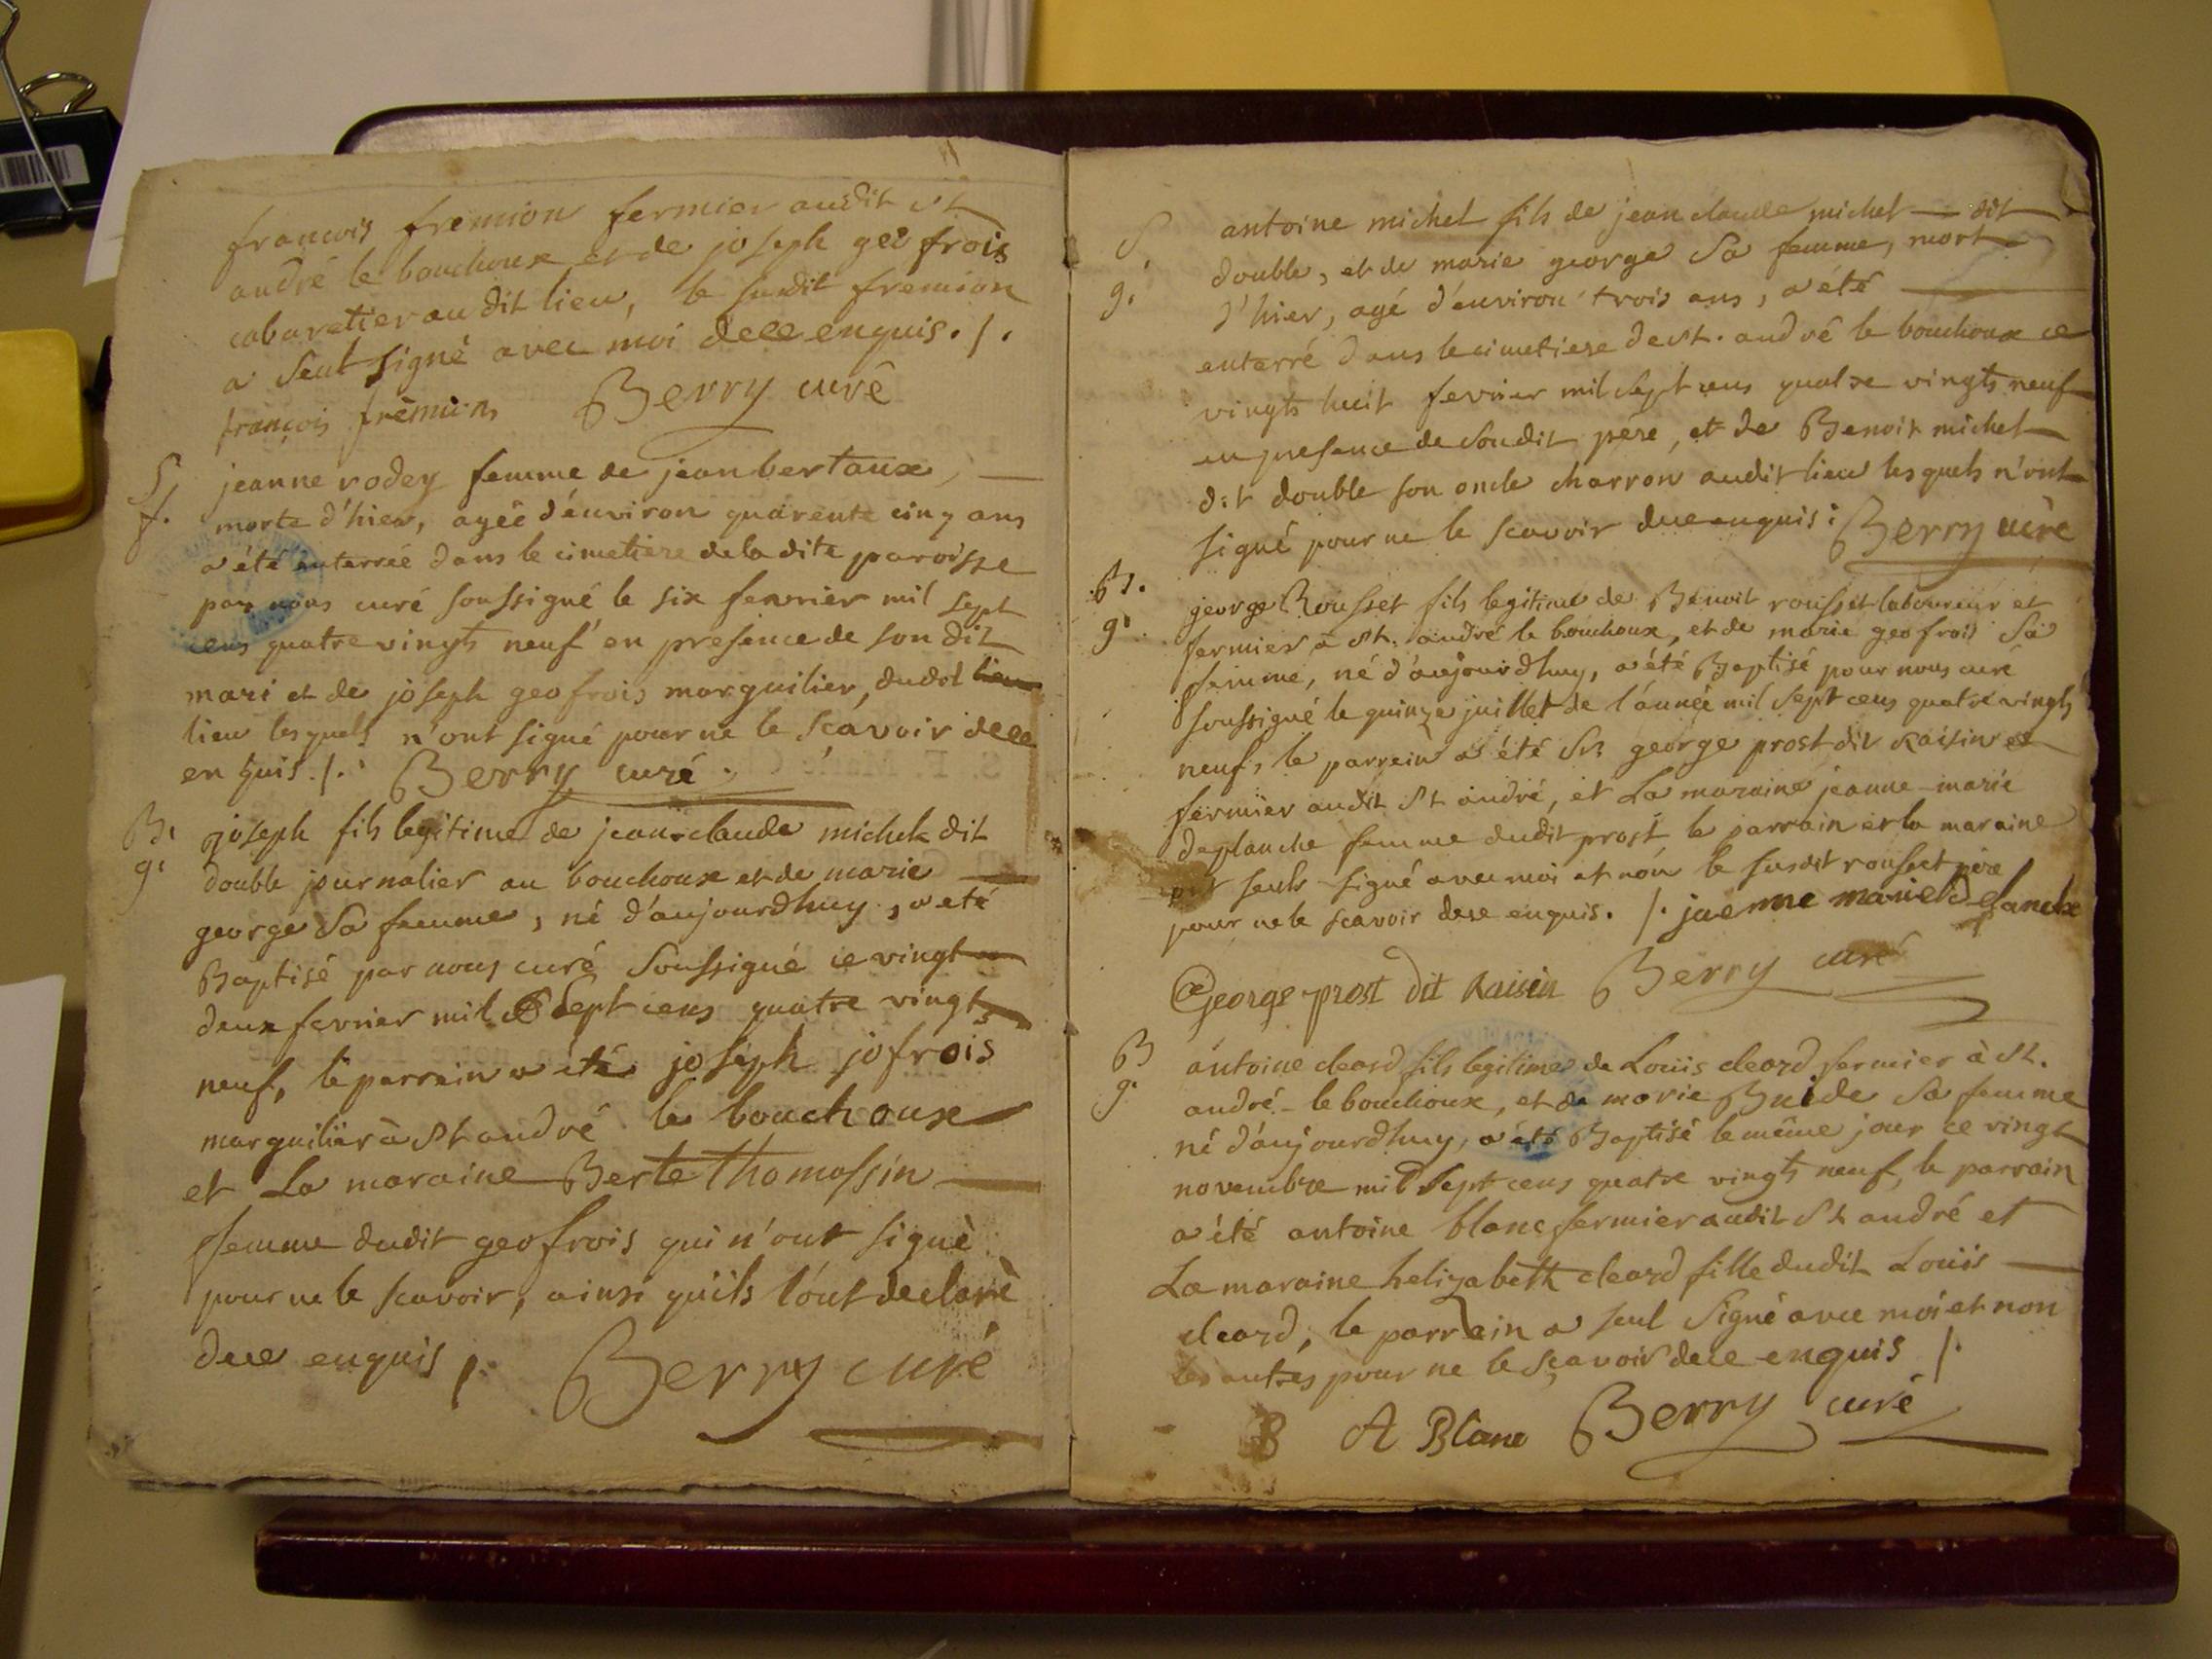 francois fremion fermier audit st
andré le bouchoux et de joseph geofrois
cabaretier au dit lieu, le susdit fremion
a seul signé avec moi de ce enquis. /.
françois frèmion Berry curé
S. jeanne rodey femme de jean bertaux,
f. morte d'hier, agée d'environ quarente cinq ans
a été enterrée dans le cimetiere de la dite paroisse
par nous curé soussigné le six fevrier mil sept
cens quatre vingts neuf en presence de son dit
mari et de joseph geofrois marguilier, dudit lieu
lieu lesquels n'ont signé pour ne le scavoir de ce
enquis /. Berry curé
B. joseph fils legitime de jean-claude michel dit
g. double journalier au bouchoux et de marie
george sa femme, né d'aujourdhuy, a eté
Baptisé par nous curé soussigné ce vingt
deux fevrier mil sept cens quatre vingts
neuf, le parrein a eté joseph jofrois
marguilier à st andré le bouchoux
et La maraine Berte thomassin
femme dudit geofrois qui n'ont signè
pour ne le scavoir, ainsi qu'ils l'ont declaré
de ce enquis /. Berry curé
S. antoine michel fils de jean claude michel dit
g. double, et de marie george sa femme, mort
d'hier, agé d'environ trois ans, a été
enterré dans le cimetiere de st. andré le bouchoux ce
vingts huit fevrier mil sept cens quatre vingts neuf
en presence de son dit père, et de Benoit michel
dit double son oncle charron audit lieu lesquels n'ont
signé pour ne le scavoir de ce enquis: Berry curé
B. george Rousset fils legitime de Benoit rousset laboureur et
g. fermier à st. andré le bouchoux, et de marie geofrois sa
femme, né d'aujourdhuy, a été Baptisé pour nous curé
soussigné le quinze juillet de l'année mil sept cens quatre vingts
neuf, le parrein a été Sr. george prost dit raisin
fermier audit St andré, et La maraine jeanne-marie
deplanche femme dudit prost, le parrain et la maraine
ont seuls signé avec moi et non le susdit rousset père
pour ne le scavoir de ce enquis. /. jaenne marie
George prost dit Raisin Berry curé
B antoine cleard fils legitime de Louis cleard fermier à st.
g. andré-le bouchoux, et de marie Buide sa femme
né d'aujourdhuy, a été Baptisé le même jour ce vingt
novembre mil sept cens quatre vingts neuf, le parrain
a été antoine blanc fermier audit St andré et
La maraine helizabeth cleard fille dudit Louis
cleard, le parrain a seul signé avec moi et non
les autres pour ne le sçavoir de ce enquis /.
B A Blanc Berry curé